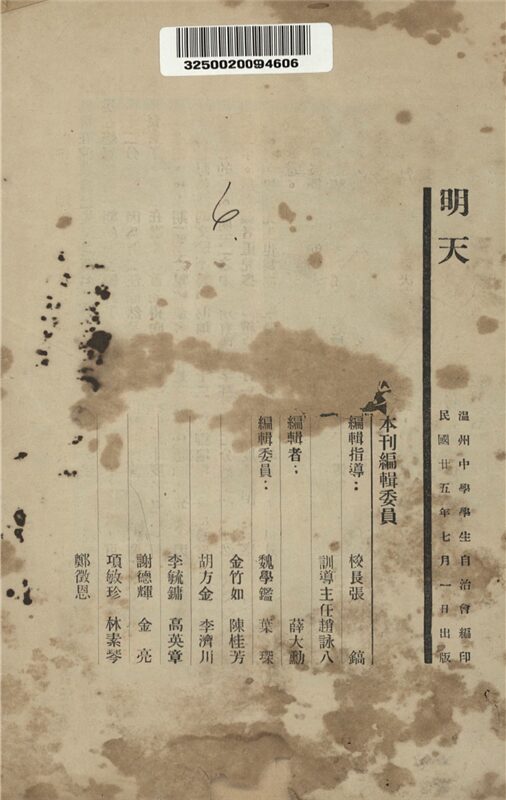 3250020094606
6.
明天
溫州中學學生自治會編印
民國廿五年七月一日出版
本刊編輯委員
編輯指導：校長張　鎬
訓導主任趙詠八
編輯者：薛大勳
編輯委員：魏學鑑　葉　琛
金竹如　陳桂芳
胡方金　李濟川
李毓鏞　高英章
謝德輝　金　亮
項敏珍　林素琴
鄭徵恩